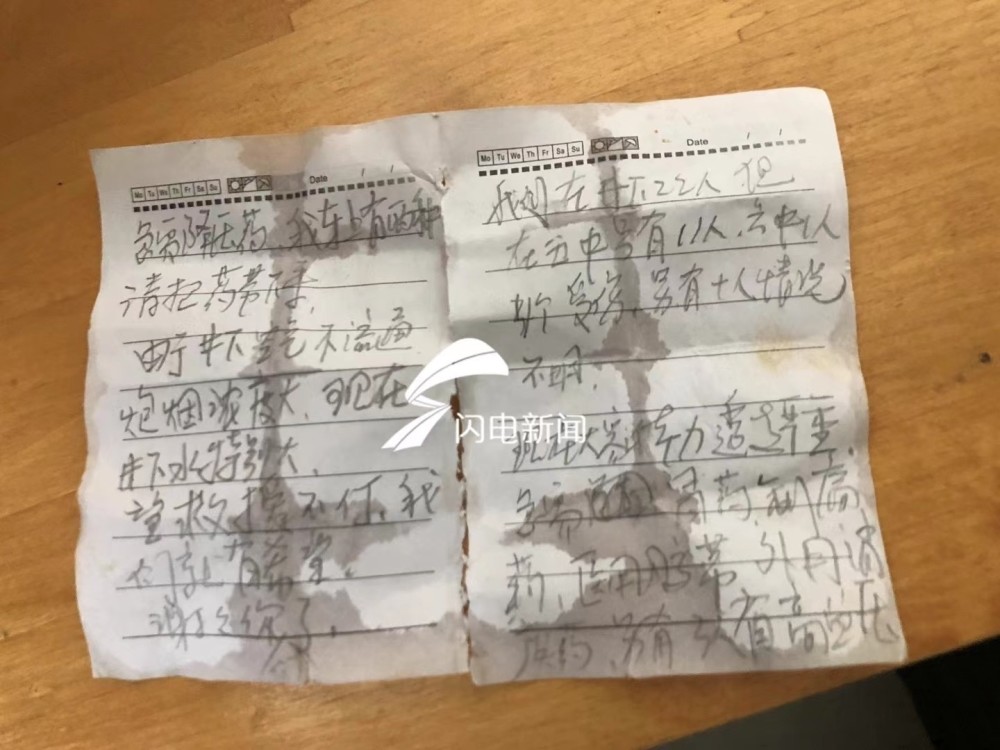 Mo Tu We Th Fr Sa Su Date
急需降压药、我车上有两种
请把药带下来
由于井下空气不流通
炮烟浓度大、现在
井下水特别大、
望救援不停、我
们就有希望.
谢谢你们了.
Mo Tu We Th Fr Sa Su Date
我们在井下22人 但
在五中 有11人、六中1人
受伤、另有十人情况
不明.
现在大家体力透支严重
急需 胃药
医用胶带 外用消
炎药、另有3人有高血压
闪电新闻